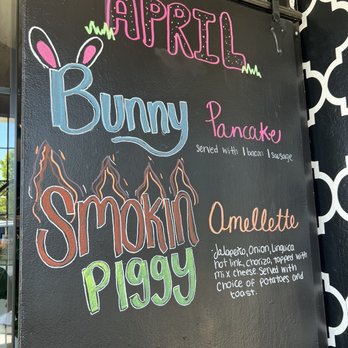 APRIL
Bunny Pancake
served with 1 bacon 1 sausage
Smokin
Piggy
Omellette
Jalapeño, Onion, Linguica
hot link, chorizo, topped with
mix cheese. Served with
choice of potatoes and
toast.